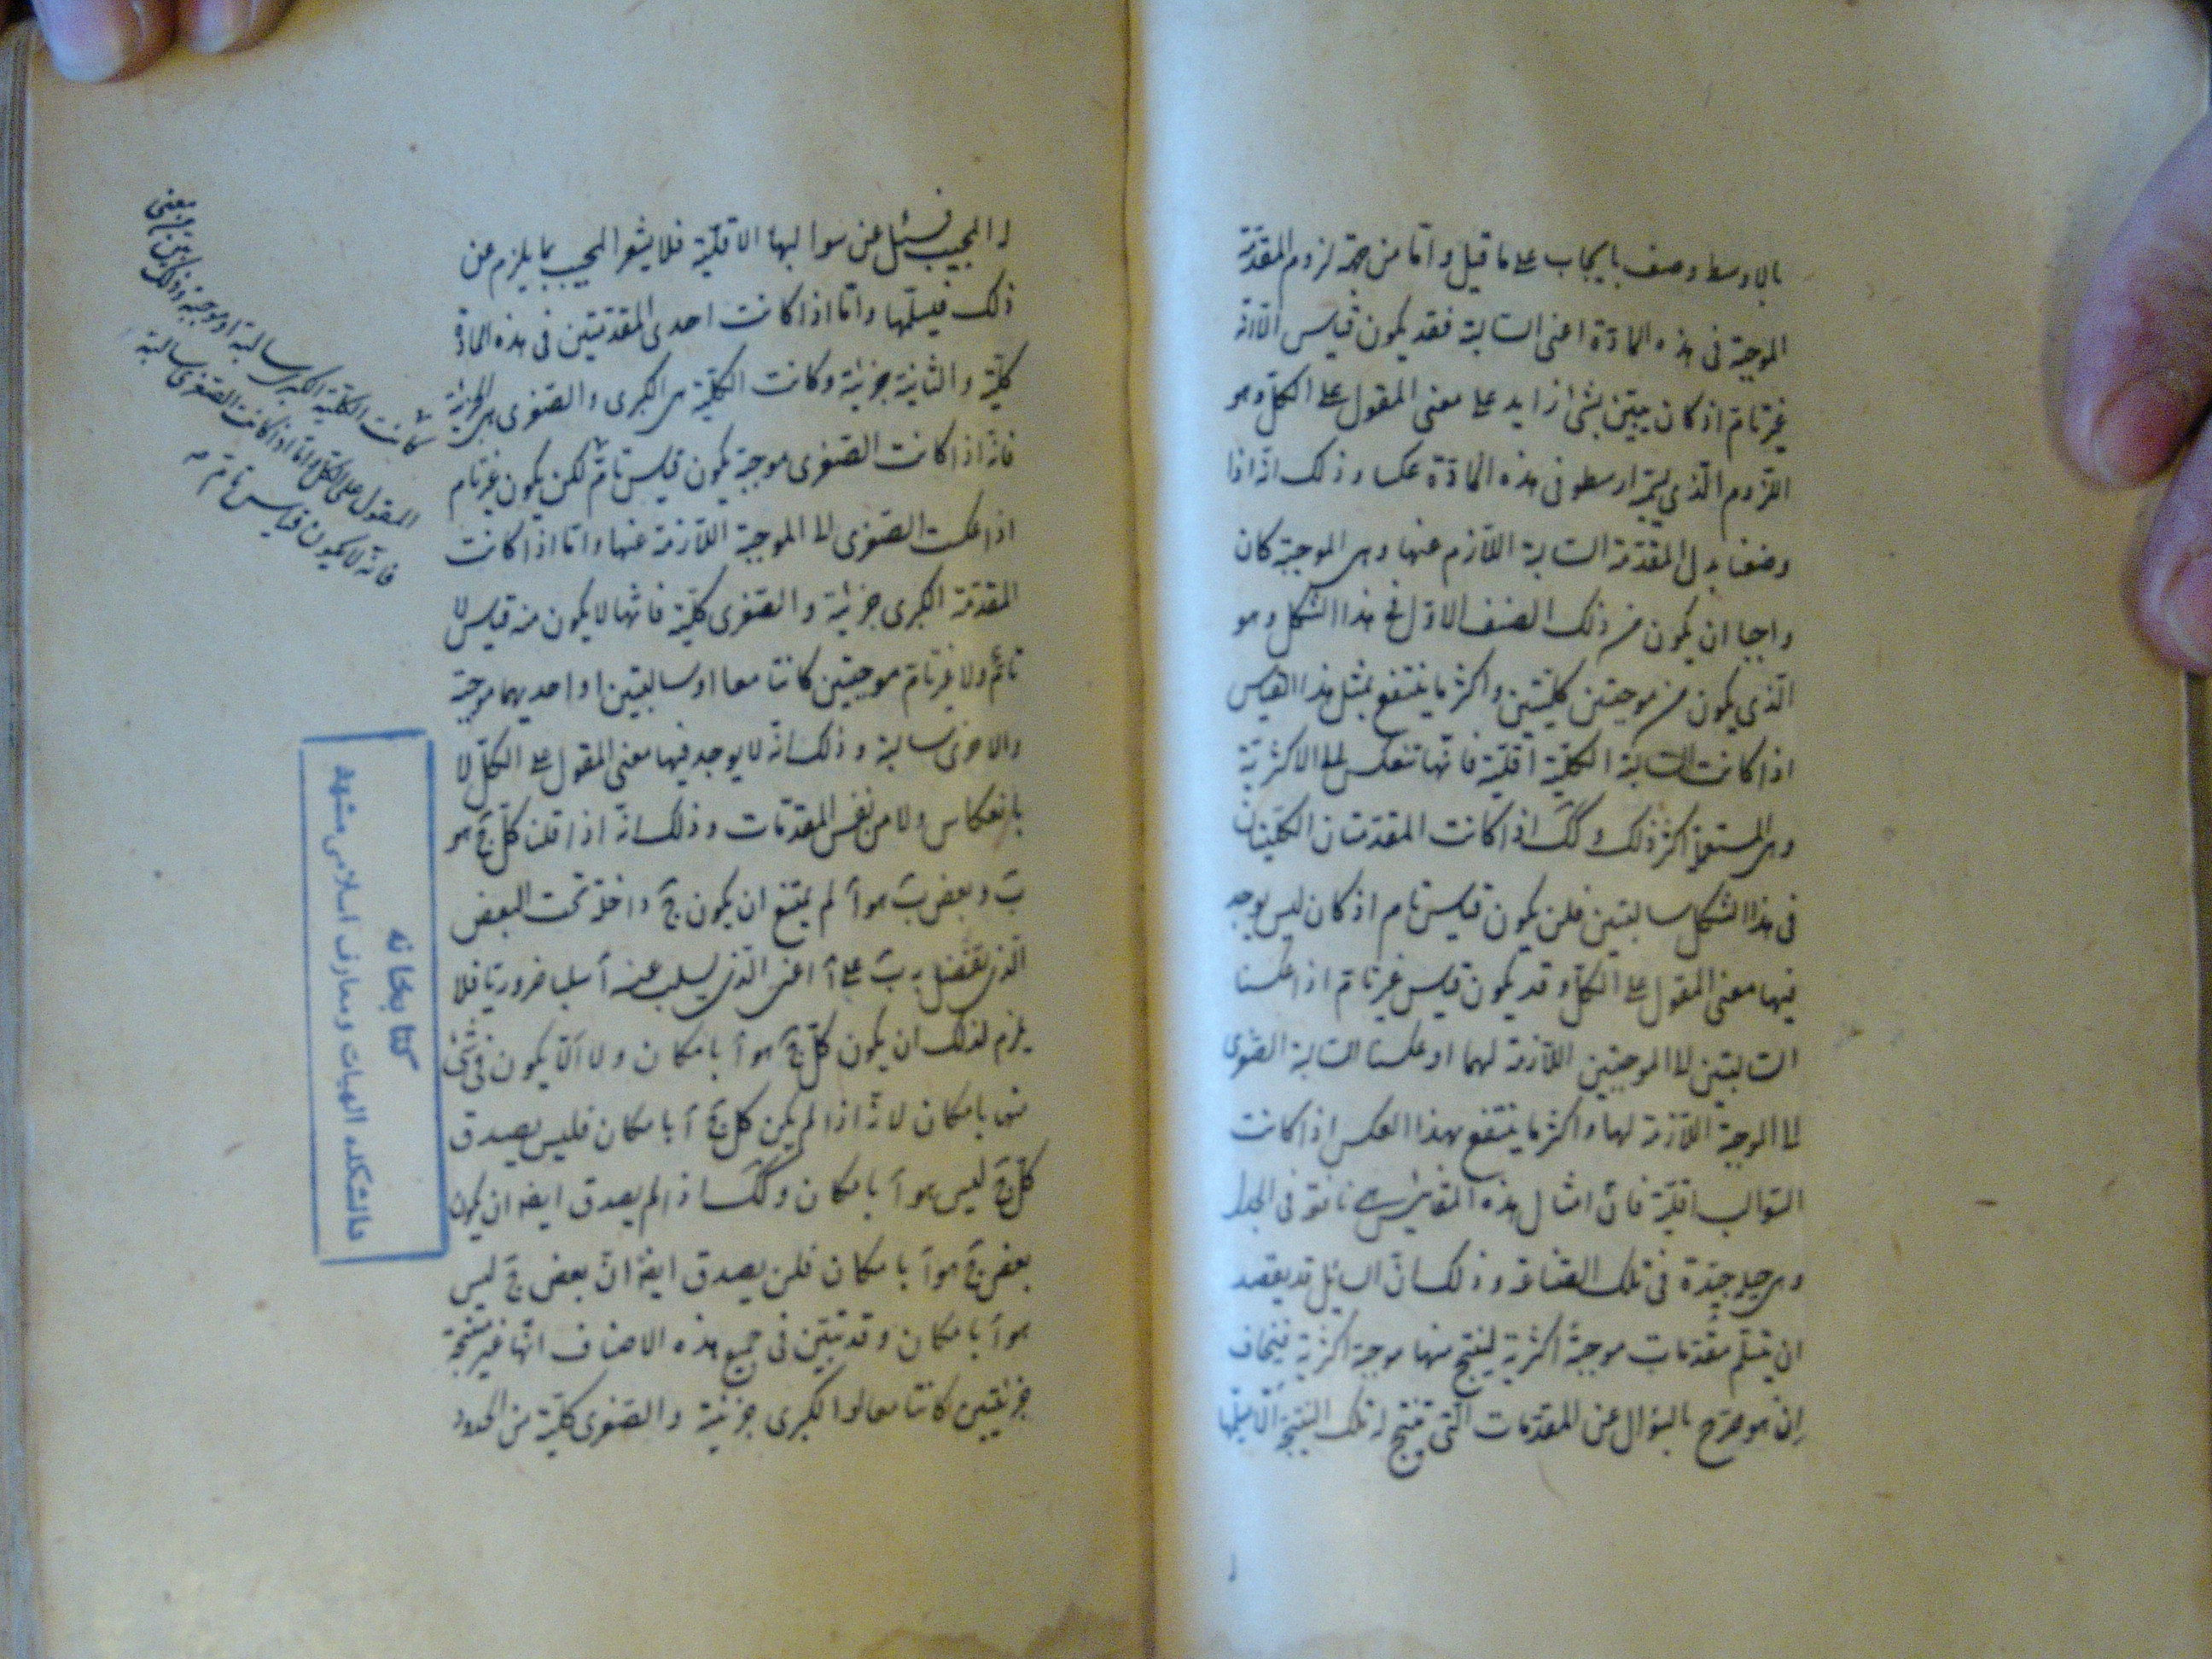 بالاوسط وصف بايجاب على ما قيل واما من جهة لزوم المقدمة
الموجبة فى هذه المادة اعنى السالبة فقد يكون قياس الا انه
غير تام اذ كان يبيّن بشئ زايد على معنى المقول على الكل وهو
اللزوم الذى يسميه ارسطو فى هذه المادة عكسا وذلك انه اذا
وضعنا بدل المقدمة السالبة اللازم عنها وهى الموجبة كان
واجبا ان يكون من ذلك الصنف الاول فى هذا الشكل وهو
الذى يكون من موجبتين كليتين واكثر ما ينتفع بمثل هذا القياس
اذا كانت السالبة الكلية اقلية فانها تنعكس الى الاكثرية
وهى المستعملة اكثر ذلك وكك اذا كانت المقدمتان الكليتان
فى هذا الشكل سالبتين فلن يكون قياس تام اذ كان ليس يوجد
فيها معنى المقول على الكل وقد يكون قياس غير تام اذا عكسنا
السالبتين الى الموجبتين اللازمة لهما او عكسنا السالبة الصغرى
الى الموجبة اللازمة لها واكثر ما ينتفع بهذا العكس اذا كانت
السوالب اقلية فان امثال هذه المقاييس هى نافعة فى الجدل
وهى حيلة جيدة فى تلك الصناعة وذلك ان السائل قد يقصد
ان يتسلم مقدمات موجبة اكثرية لينتج منها موجبة اكثرية فيخاف
ان هو صرح بالسؤال عن المقدمات التى تنتج له تلك النتيجة الا يسلمها
له المجيب فسئل عن سوالبها الاقلية فلا يشعر المجيب بما يلزم عن
ذلك فيسلمها واما اذا كانت احدى المقدمتين فى هذه المادة
كلية والثانية جزئية وكانت الكلية هى الكبرى والصغرى هى الجزئية
فانه اذا كانت الصغرى موجبة يكون قياس تام لكن يكون غير تام
اذا عكست الصغرى الى الموجبة اللازمة عنها واما اذا كانت
المقدمة الكبرى جزئية والصغرى كلية فانها لا يكون منه قياس لا
تام ولا غير تام موجبتين كانتا معا او سالبتين او احديهما موجبة
والاخرى سالبة وذلك انه لا يوجد فيها معنى المقول على الكل لا
بانعكاس ولا من نفس المقدمات وذلك انه اذا قلنا كل ج هو
ب وبعض ب هو أ لم يمتنع ان يكون ج داخلة تحت البعض
الذى تفضل به ب على أ اعنى الذى يسلب عنه أ سلبا ضروريا فلا
يلزم لذلك ان يكون كل ج هو أ بامكان ولا الا يكون فى شئ
منها بامكان لانه اذا لم يكن كل ج أ بامكان فليس يصدق
كل ج ليس هو أ بامكان وكك اذ لم يصدق ايضا ان يكون
بعض ج هو أ بامكان فلن يصدق ايضا ان بعض ج ليس
هو أ بامكان وقد تبين فى جميع هذه الاصناف انها غير منتجة
جزئيتين كانتا معا او الكبرى جزئية والصغرى كلية من الحدود
كانت الكلية الكبرى سالبة او موجبة وذلك بين من معنى
المقول على الكل واما اذا كانت الصغرى سالبة
فانه لا يكون قياس تام
كتابخانه
دانشكده الهيات ومعارف اسلامى مشهد